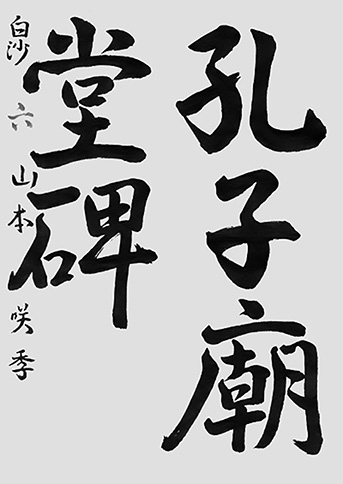 孔子廟
堂碑
白沙 六 山本 咲季